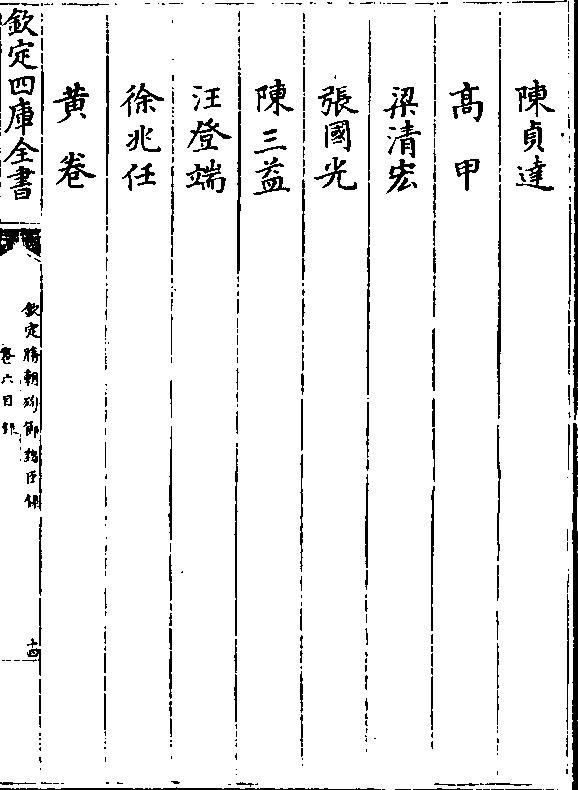 陳貞達
高甲
梁清宏
張國光
陳三益
汪登端
徐兆任
黄卷
欽定四庫全書
欽定勝朝殉節諸臣錄
卷六目錄
十四